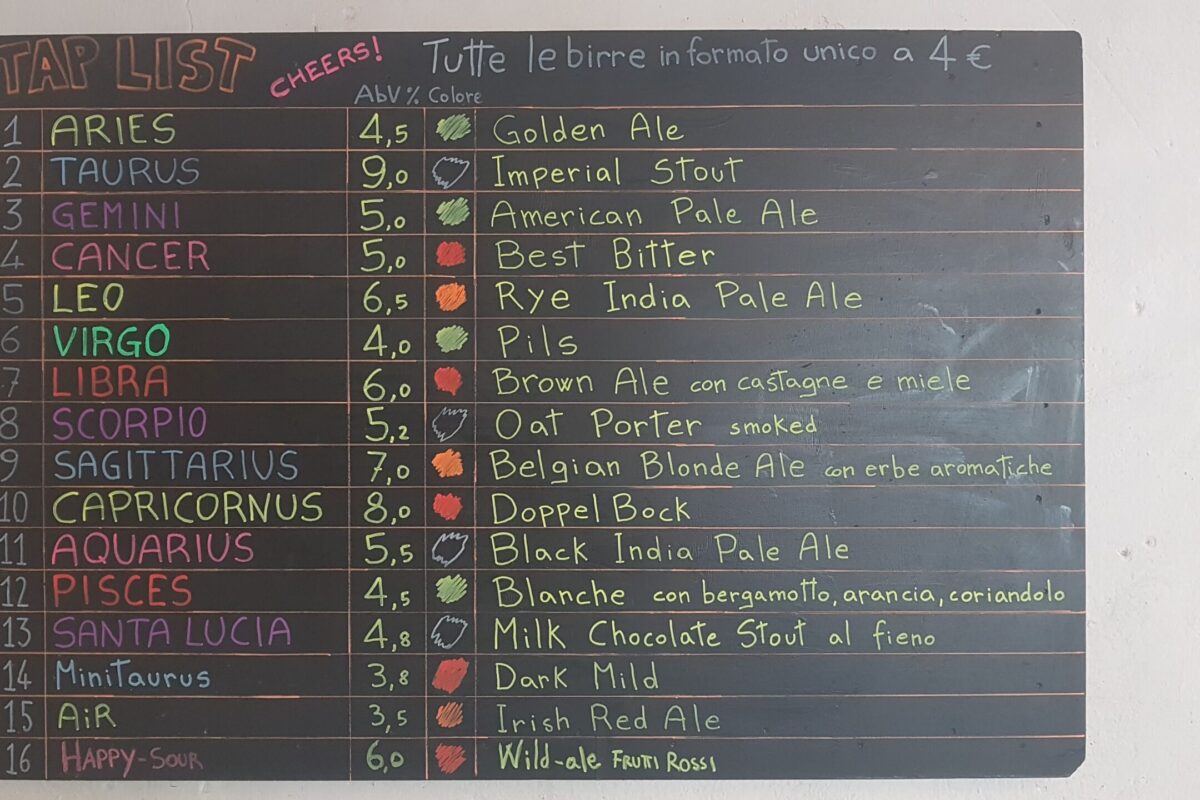 TAP LIST CHEERS! Tutte le birre in formato unico a 4 €
AbV % Colore
1 ARIES 4,5 Golden Ale
2 TAURUS 9,0 Imperial Stout
3 GEMINI 5,0 American Pale Ale
4 CANCER 5,0 Best Bitter
5 LEO 6,5 Rye India Pale Ale
6 VIRGO 4,0 Pils
7 LIBRA 6,0 Brown Ale con castagne e miele
8 SCORPIO 5,2 Oat Porter smoked
9 SAGITTARIUS 7,0 Belgian Blonde Ale con erbe aromatiche
10 CAPRICORNUS 8,0 Doppel Bock
11 AQUARIUS 5,5 Black India Pale Ale
12 PISCES 4,5 Blanche con bergamotto, arancia, coriandolo
13 SANTA LUCIA 4,8 Milk Chocolate Stout al fieno
14 MiniTaurus 3,8 Dark Mild
15 AiR 3,5 Irish Red Ale
16 HAPPY-SOUR 6,0 Wild-ale FRUTTI ROSSI